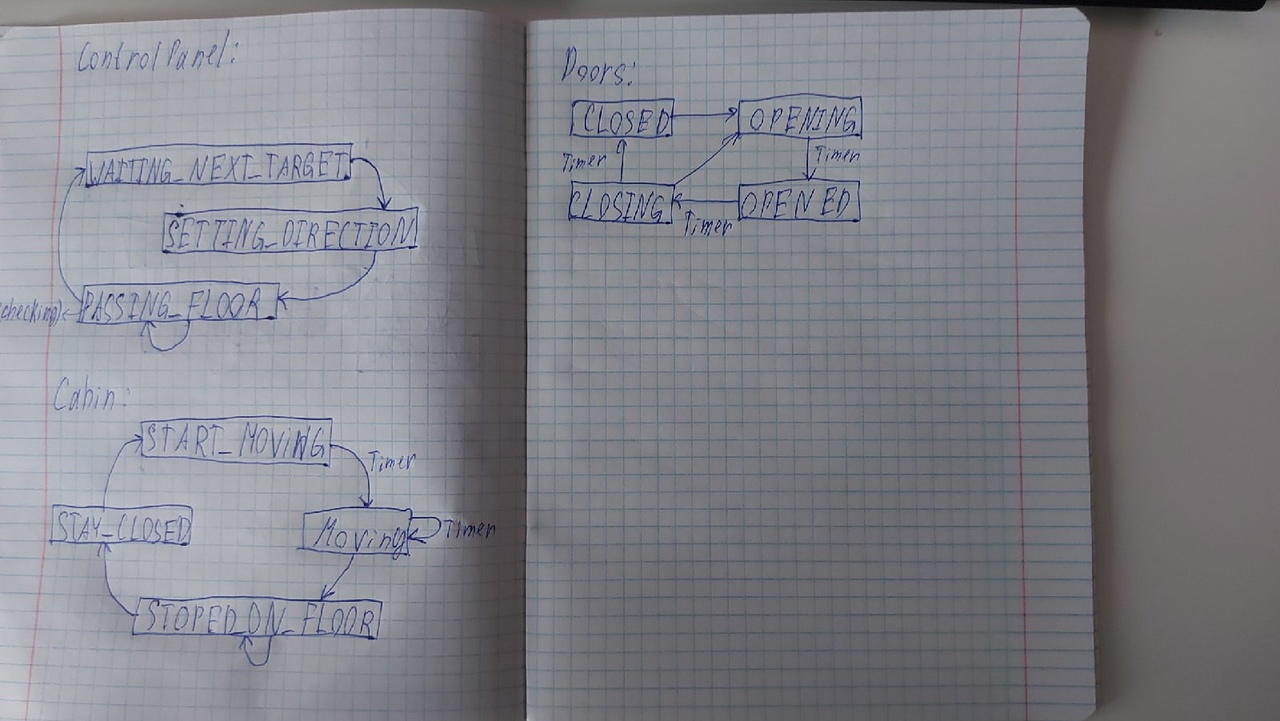 Control Panel:
WAITING_NEXT_TARGET
SETTING_DIRECTION
(checking)
PASSING_FLOOR
Cabin:
START_MOVING
Timer
STAY_CLOSED
Moving
Timer
STOPED_ON_FLOOR
Doors:
CLOSED
OPENING
Timer
Timer
CLOSING
OPENED
Timer